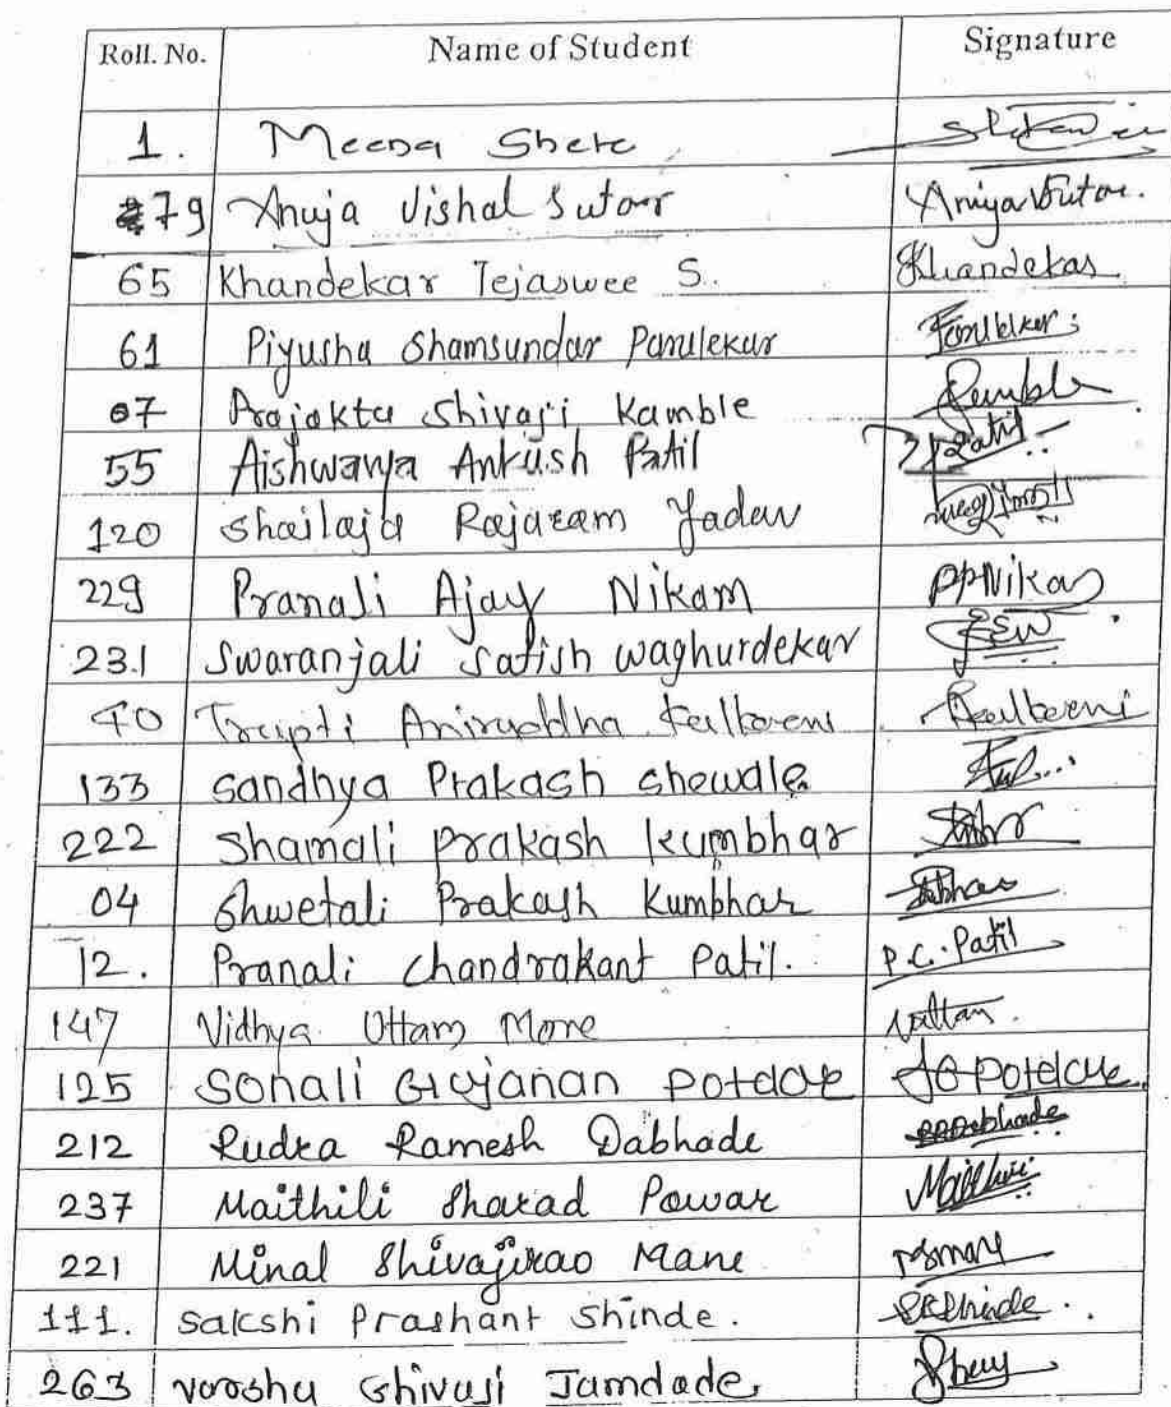 Roll. No. Name of Student Signature
1. Meena Shete
79 Anuja Vishal Sutar AnujaVSutar.
65 Khandekar Tejaswee S. Khandekar
61 Piyusha Shamsundar Parulekar Parulekar
07 Prajakta Shivaji Kamble Kamble
55 Aishwarya Ankush Patil Patil
120 Shailaja Rajaram Yadav
229 Pranali Ajay Nikam PPNikam
231 Swaranjali Satish Waghurdekar
40 Trupti Aniruddha Kulkarni Kulkarni
133 Sandhya Prakash Shewale
222 Shamali Prakash Kumbhar
04 Shwetali Prakash Kumbhar
12. Pranali Chandrakant Patil. P.C. Patil
147 Vidhya Uttam More
125 Sonali Gajanan Potdar SGPotdar
212 Rudra Ramesh Dabhade RRDabhade
237 Maithili Sharad Pawar Maithili
221 Minal Shivajirao Mane
111. Sakshi Prashant Shinde. SPShinde
263 Varsha Shivaji Jamdade